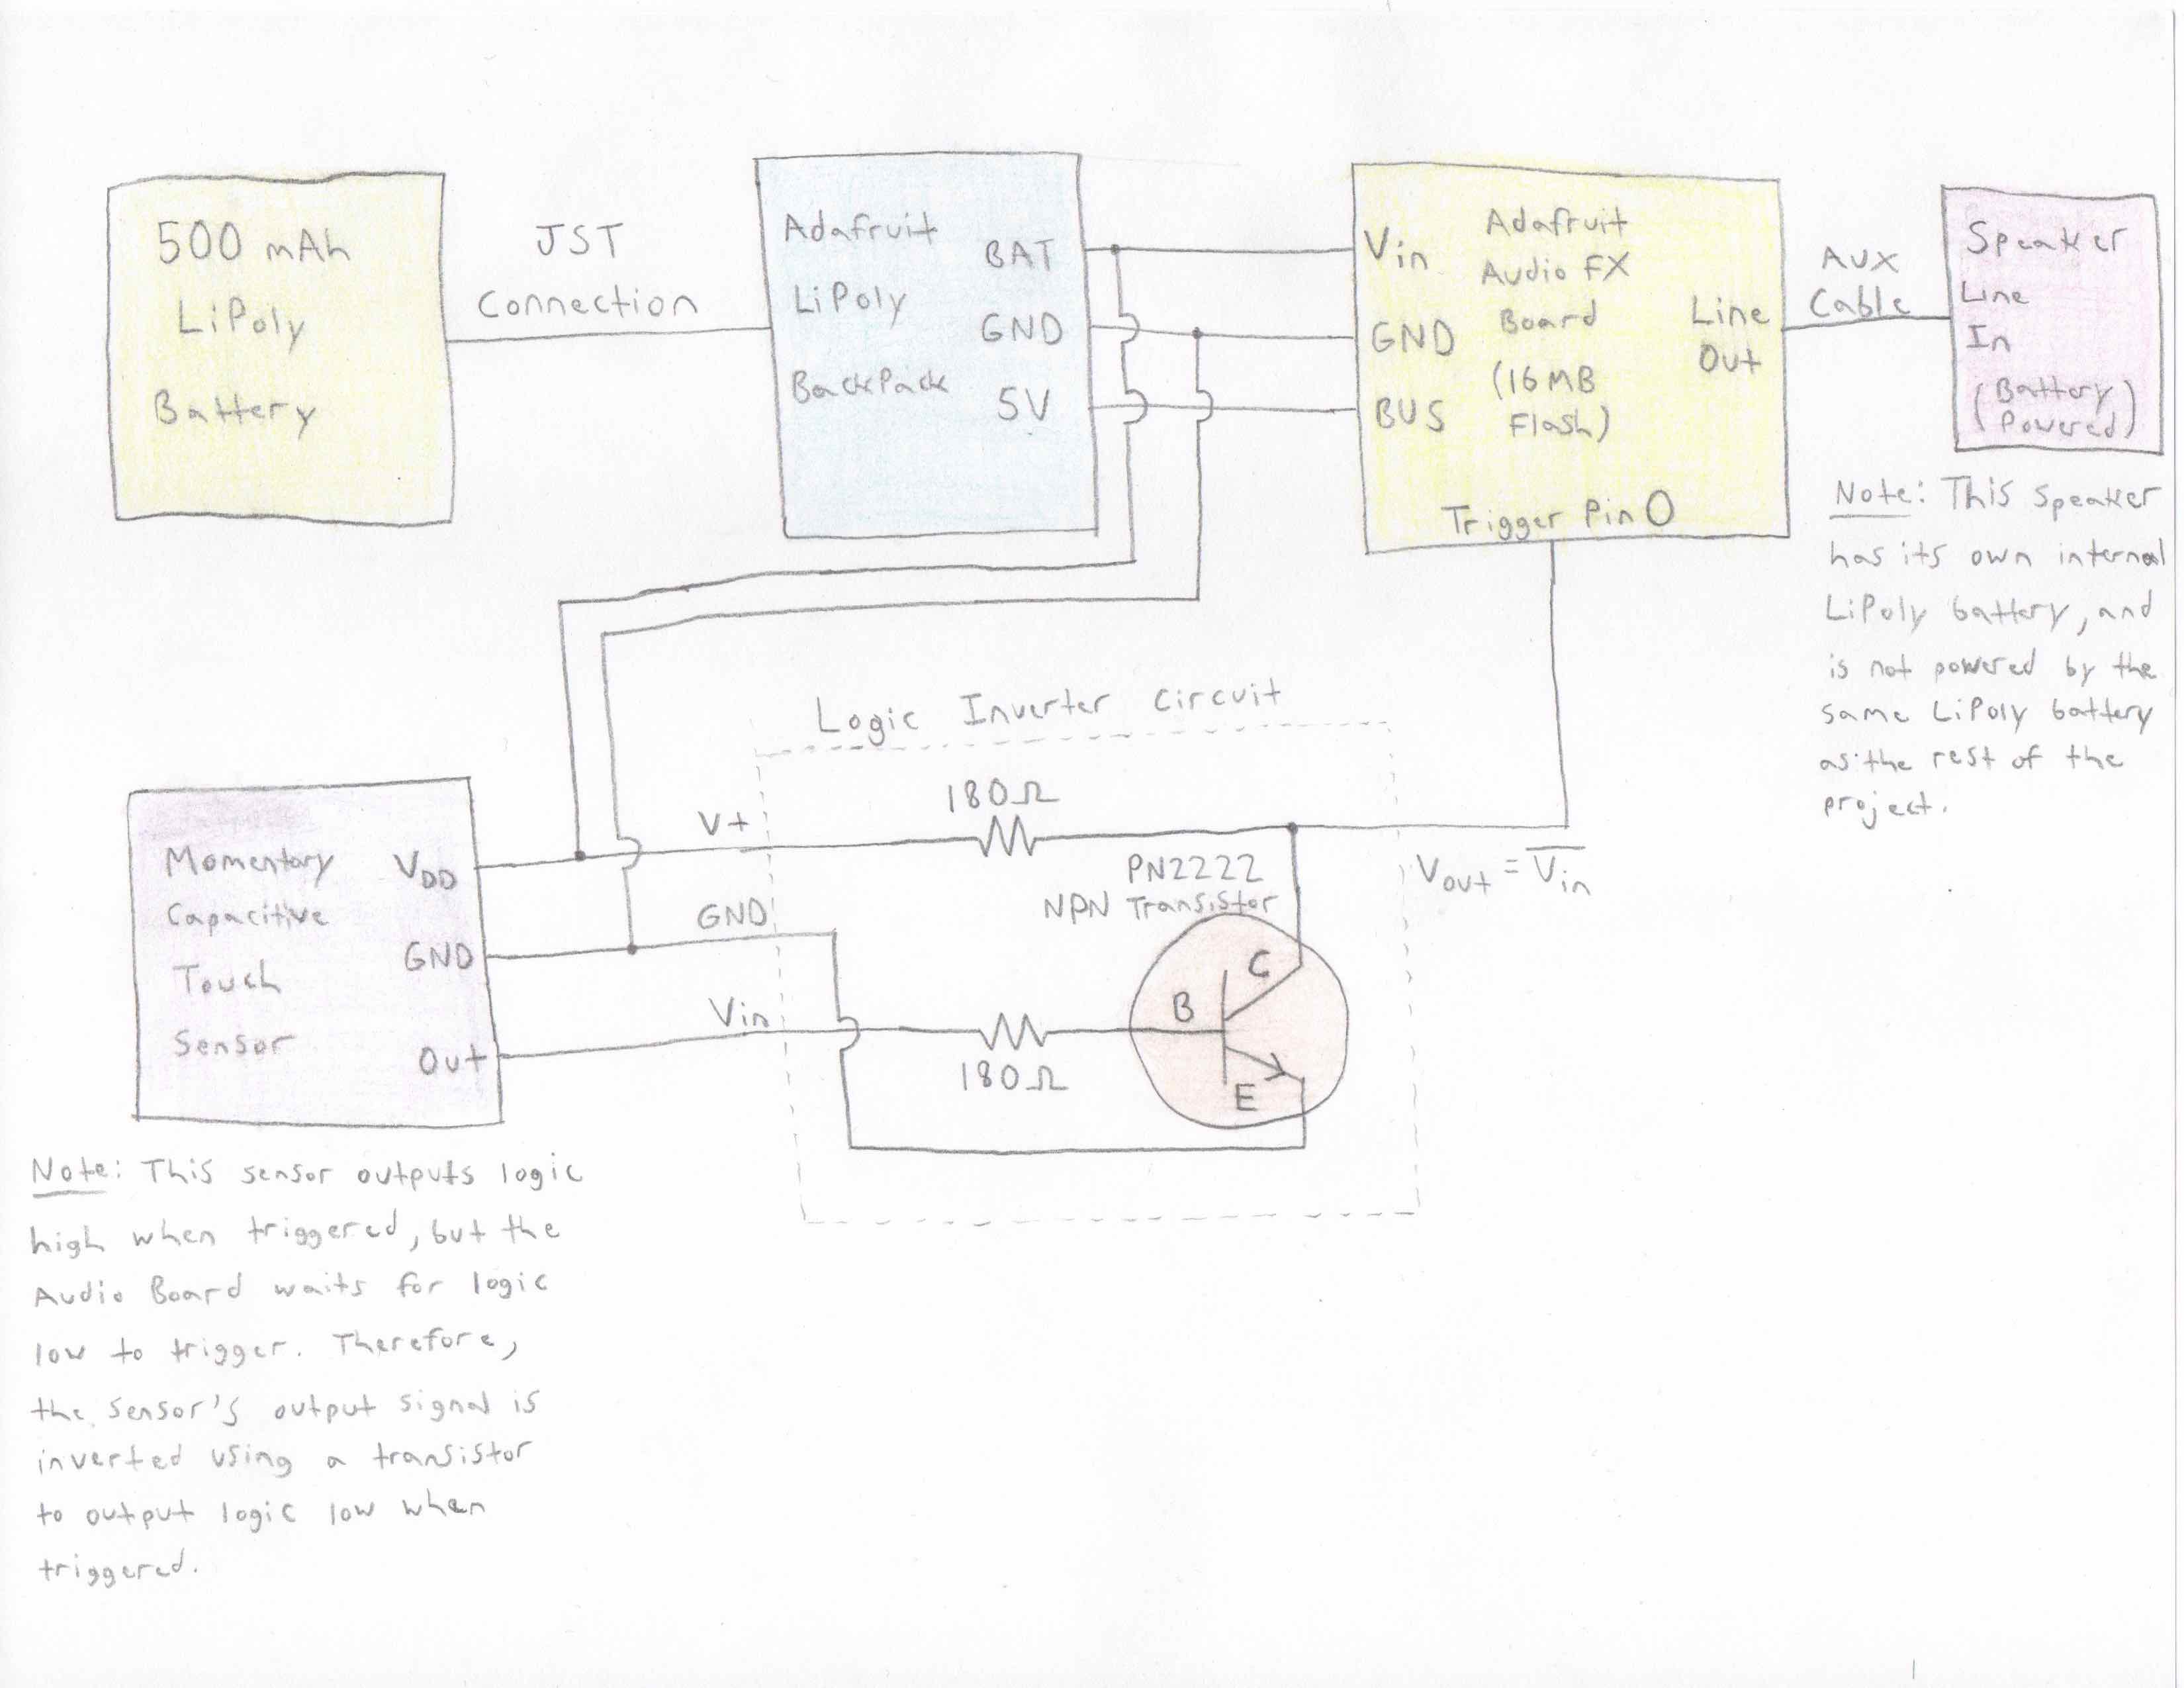 500 mAh
LiPoly
Battery
JST
Connection
Adafruit
LiPoly
BackPack
BAT
GND
5V
Vin
GND
BUS
Adafruit
Audio FX
Board
(16 MB
Flash)
Line
Out
Trigger Pin 0
AUX
Cable
Speaker
Line
In
(Battery
Powered)
Note: This speaker
has its own internal
LiPoly battery, and
is not powered by the
same LiPoly battery
as the rest of the
project.
Logic Inverter Circuit
Momentary
Capacitive
Touch
Sensor
VDD
GND
Out
V+
GND
Vin
180Ω
PN2222
NPN Transistor
C
B
E
180Ω
Vout = V̅i̅n̅
Note: This sensor outputs logic
high when triggered, but the
Audio Board waits for logic
low to trigger. Therefore,
the sensor's output signal is
inverted using a transistor
to output logic low when
triggered.